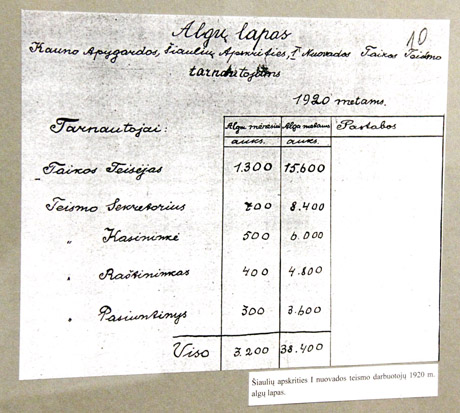 10
Algų lapas
Kauno Apygardos, Šiaulių Apskrities, I Nuovados Taikos Teismo
tarnautojams
1920 metams.
Tarnautojai: Alga mėnesiui Alga metams Pastabos
auks. auks.
Taikos Teisėjas 1.300 15.600
Teismo Sekretorius 700 8.400
" Kasininkė 500 6.000
" Raštininkas 400 4.800
" Pasiuntinys 300 3.600
Viso 3.200 38.400
Šiaulių apskrities I nuovados teismo darbuotojų 1920 m.
algų lapas.